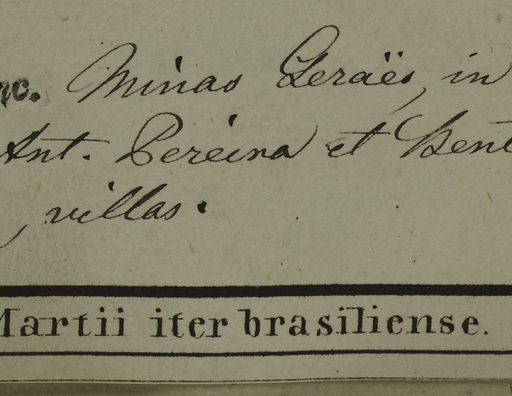 nc. Minas Geraës, in
Ant. Pereira et Bent
, villas.
Martii iter brasiliense.